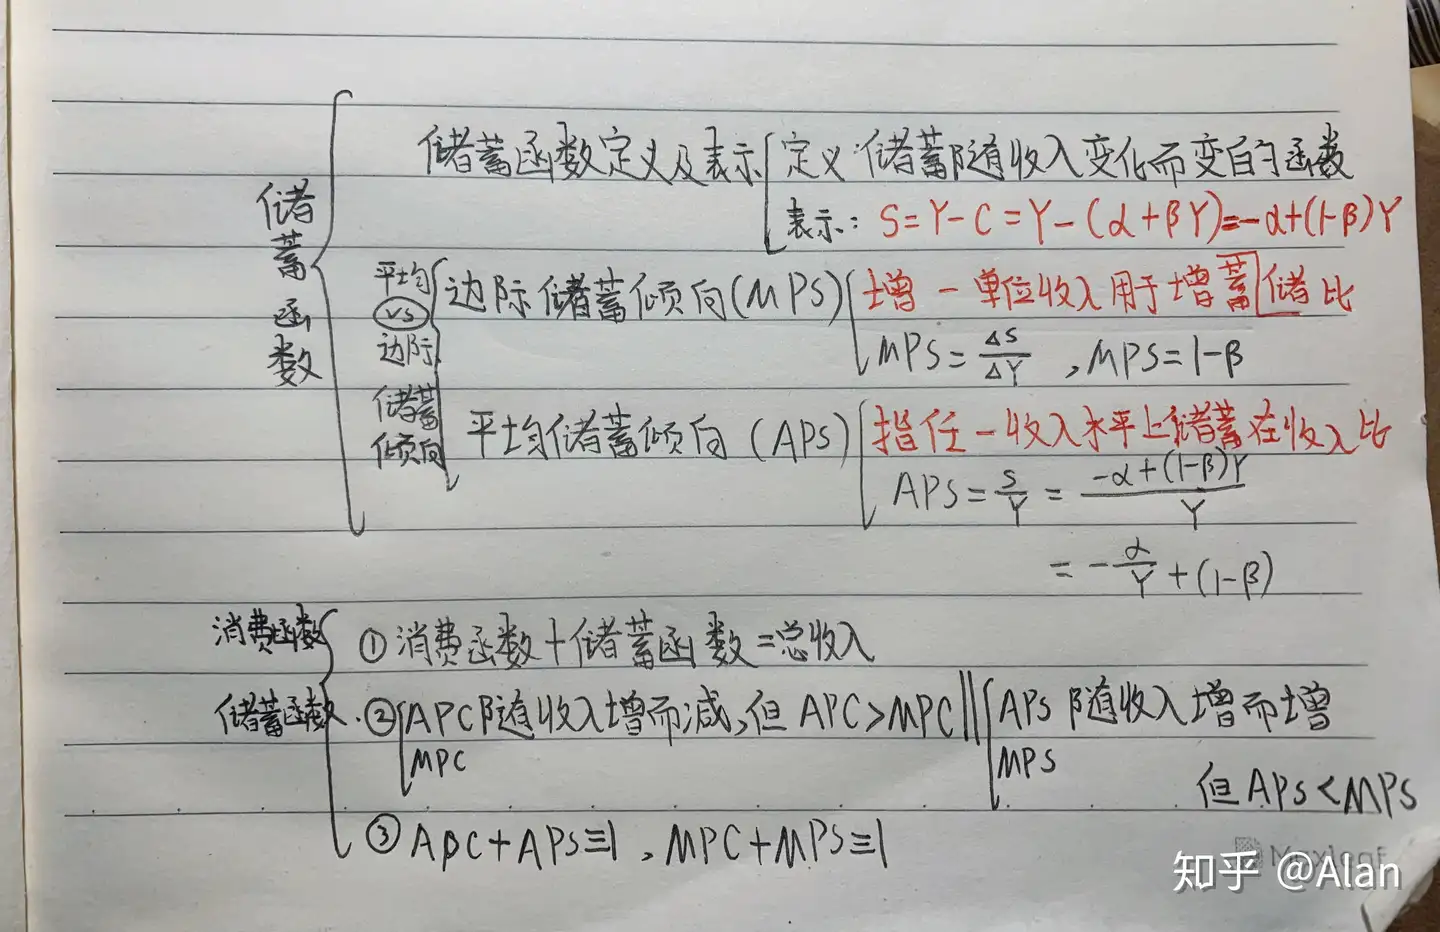 储蓄函数
储蓄函数定义及表示
定义:储蓄随收入变化而变的函数
表示: S=Y-C=Y-(α+βY)=-α+(1-β)Y
平均
vs
边际
储蓄
倾向
边际储蓄倾向(MPS)
增一单位收入用于增蓄储比
MPS=ΔS/ΔY ,MPS=1-β
平均储蓄倾向(APS)
指任一收入水平上储蓄在收入比
APS=S/Y=(-α+(1-β)Y)/Y
=-α/Y+(1-β)
消费函数
储蓄函数.
①消费函数+储蓄函数=总收入
②APC随收入增而减,但APC>MPC
MPC
APS随收入增而增
MPS
但APS<MPS
③APC+APS≡1,MPC+MPS≡1
知乎 @Alan